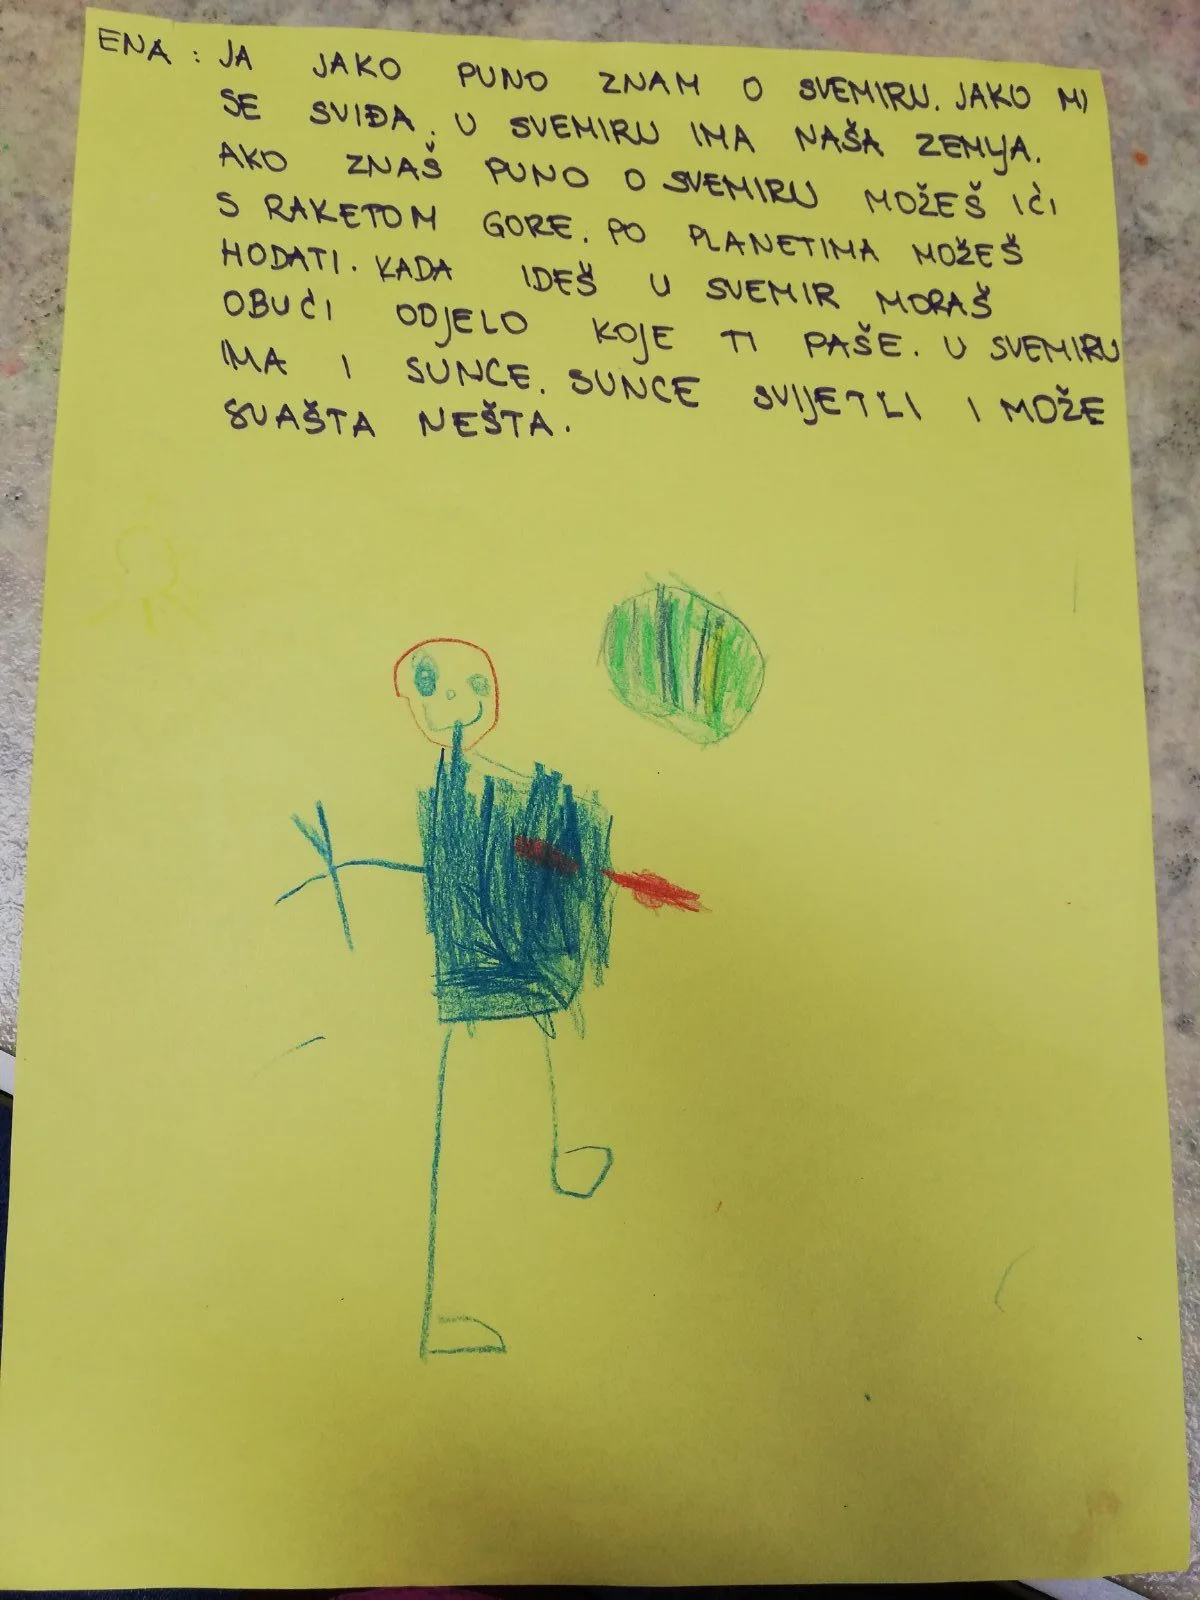 ENA: JA JAKO PUNO ZNAM O SVEMIRU. JAKO MI
SE SVIĐA. U SVEMIRU IMA NAŠA ZEMLJA.
AKO ZNAŠ PUNO O SVEMIRU MOŽEŠ IĆI
S RAKETOM GORE. PO PLANETIMA MOŽEŠ
HODATI. KADA IDEŠ U SVEMIR MORAŠ
OBUĆI ODJELO KOJE TI PAŠE. U SVEMIRU
IMA I SUNCE. SUNCE SVIJETLI I MOŽE
SVAŠTA NEŠTA.